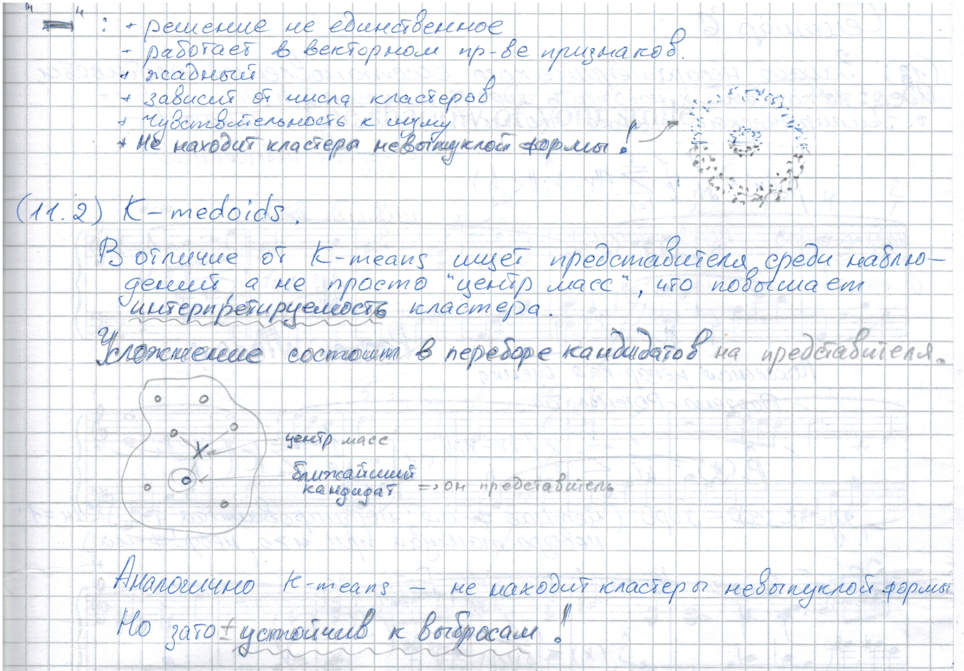 "—" : + решение не единственное
- работает в векторном пр-ве признаков.
+ жадный
+ зависит от числа кластеров
+ чувствительность к шуму
+ не находит кластеры невыпуклой формы!
(11.2) K-medoids.
В отличие от K-means ищет представителя среди наблю-
дений, а не просто "центр масс", что повышает
интерпретируемость кластера.
Усложнение состоит в переборе кандидатов на представителя.
центр масс
ближайший
кандидат => он представитель
Аналогично K-means – не находит кластеры невыпуклой формы
Но зато ± устойчив к выбросам!